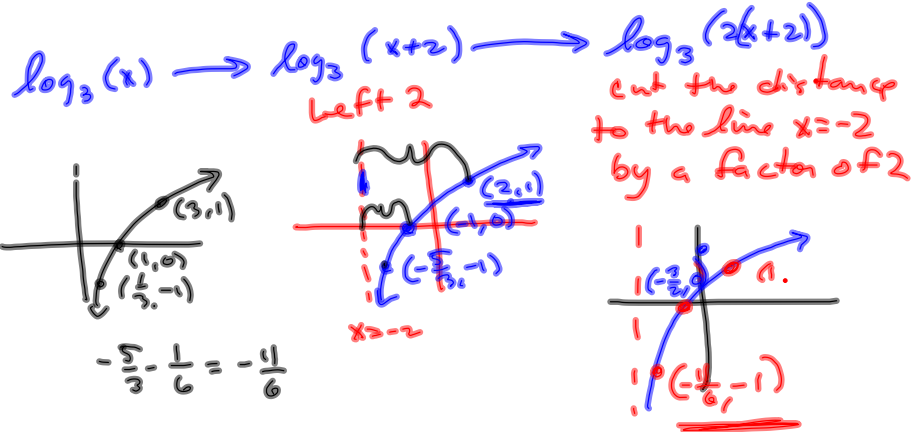 log₃(x) → log₃(x+2) → log₃(2(x+2))
Left 2
cut the distance
to the line x=-2
by a factor of 2
(3,1)
(1,0)
(1/3,-1)
(2,1)
(-1,0)
(-5/3,-1)
x=-2
(-3/2,0
(1.
(-11/6,-1)
-5/3-1/6=-11/6